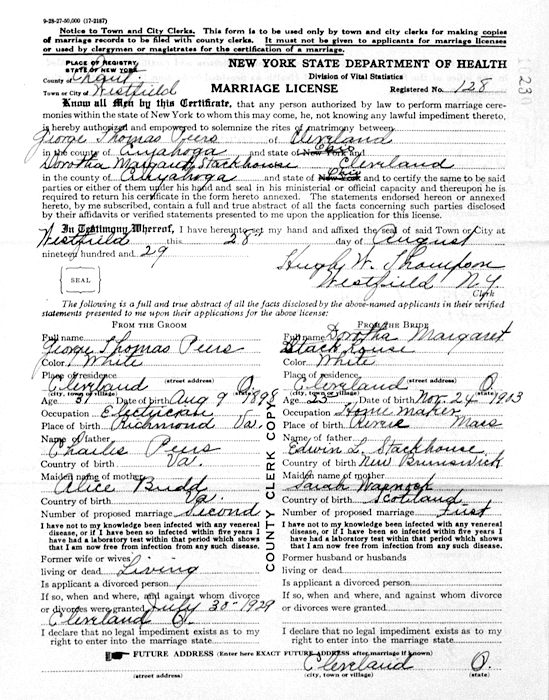 9-28-27-50,000 (17-2187)
Notice to Town and City Clerks. This form is to be used only by town and city clerks for making copies
of marriage records to be filed with county clerks. It must not be given to applicants for marriage licenses
or used by clergymen or magistrates for the certification of a marriage.
PLACE OF REGISTRY
STATE OF NEW YORK
NEW YORK STATE DEPARTMENT OF HEALTH
County of
Division of Vital Statistics
Town or City of Westfield
MARRIAGE LICENSE
Registered No. 128
Know all Men by this Certificate, that any person authorized by law to perform marriage cere-
monies within the state of New York to whom this may come, he, not knowing any lawful impediment thereto,
is hereby authorized and empowered to solemnize the rites of matrimony between
George Thomas Peirs of Cleveland
in the county of Cuyahoga and state of New York and Ohio
Dorotha Margaret Stackhouse Cleveland
in the county of Cuyahoga and state of New York Ohio and to certify the same to be said
parties or either of them under his hand and seal in his ministerial or official capacity and thereupon he is
required to return his certificate in the form hereto annexed. The statements endorsed hereon or annexed
hereto, by me subscribed, contain a full and true abstract of all the facts concerning such parties disclosed
by their affidavits or verified statements presented to me upon the application for this license.
In Testimony Whereof, I have hereunto set my hand and affixed the seal of said Town or City at
Westfield this 28" day of August
nineteen hundred and 29
Hugh W. Thompson
Westfield N.Y.
Clerk
SEAL
The following is a full and true abstract of all the facts disclosed by the above-named applicants in their verified
statements presented to me upon their applications for the above license:
FROM THE GROOM
Full name
George Thomas Peirs
Color White
Place of residence
Cleveland (street address) O.
(city, town or village) (state)
Age 31 Date of birth Aug 9 1898
Occupation Electrician
Place of birth Richmond Va.
Name of father
Charles Peirs
Country of birth Va.
Maiden name of mother
Alice Budd
Country of birth Va.
Number of proposed marriage Second
I have not to my knowledge been infected with any venereal
disease, or if I have been so infected within five years I
have had a laboratory test within that period which shows
that I am now free from infection from any such disease.
Former wife or wives
living or dead Living
Is applicant a divorced person
If so, when and where, and against whom divorce
or divorces were granted July 30 - 1929
Cleveland O.
I declare that no legal impediment exists as to my
right to enter into the marriage state.
COUNTY CLERK COPY
FROM THE BRIDE
Full name Dorotha Margaret
Stackhouse
Color White
Place of residence
Cleveland (street address) O.
(city, town or village) (state)
Age 25 Date of birth Nov. 24 1903
Occupation Home Maker
Place of birth Revere Mass
Name of father
Edwin L. Stackhouse
Country of birth New Brunswick
Maiden name of mother
Sarah Warnock
Country of birth Scotland
Number of proposed marriage First
I have not to my knowledge been infected with any venereal
disease, or if I have been so infected within five years I
have had a laboratory test within that period which shows
that I am now free from infection from any such disease.
Former husband or husbands
living or dead
Is applicant a divorced person
If so, when and where, and against whom divorce
or divorces were granted
I declare that no legal impediment exists as to my
right to enter into the marriage state.
FUTURE ADDRESS (Enter here EXACT FUTURE ADDRESS after marriage if known)
Cleveland O.
(street address) (city, town or village) (state)